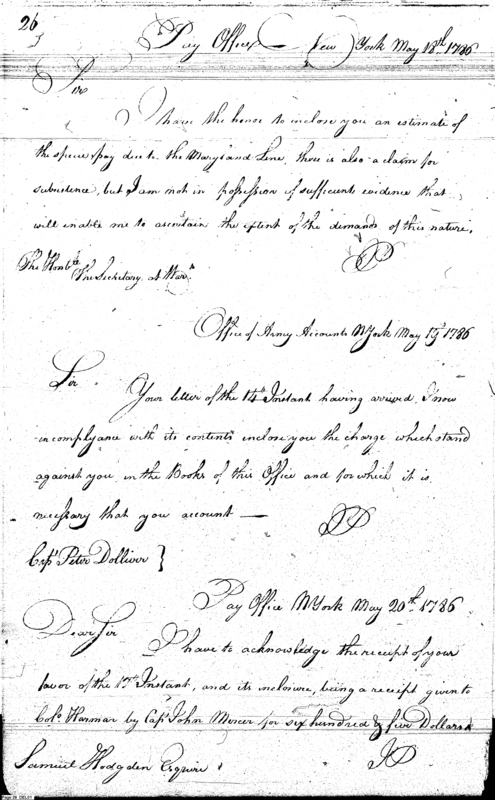 26
Pay Office New York May 18th 1786
Sir
I have the honor to inclose you an estimate of
the specie pay due to the Maryland Line, there is also a claim for
subsistence, but I am not in possession of sufficient evidence that
will enable me to ascertain the extent of the demands of this nature.
JP
The Honble
The Secretary at War
Office of Army Accounts NYork May 19th 1786
Sir
Your letter of the 14th Instant having arrived, I now
in complyance with its contents inclose you the charge which stand
against you in the Books of this Office and for which it is
necessary that you account —
JP
Capt Peter Dolliver }
Pay Office NYork May 20th 1786
Dear Sir
I have to acknowledge the receipt of your
favor of the Instant, and its inclosure, being a receipt given to
Colo Harmar by Capt John Mercer for six hundred & five Dollars
JP
Samuel Hodgden Esquire